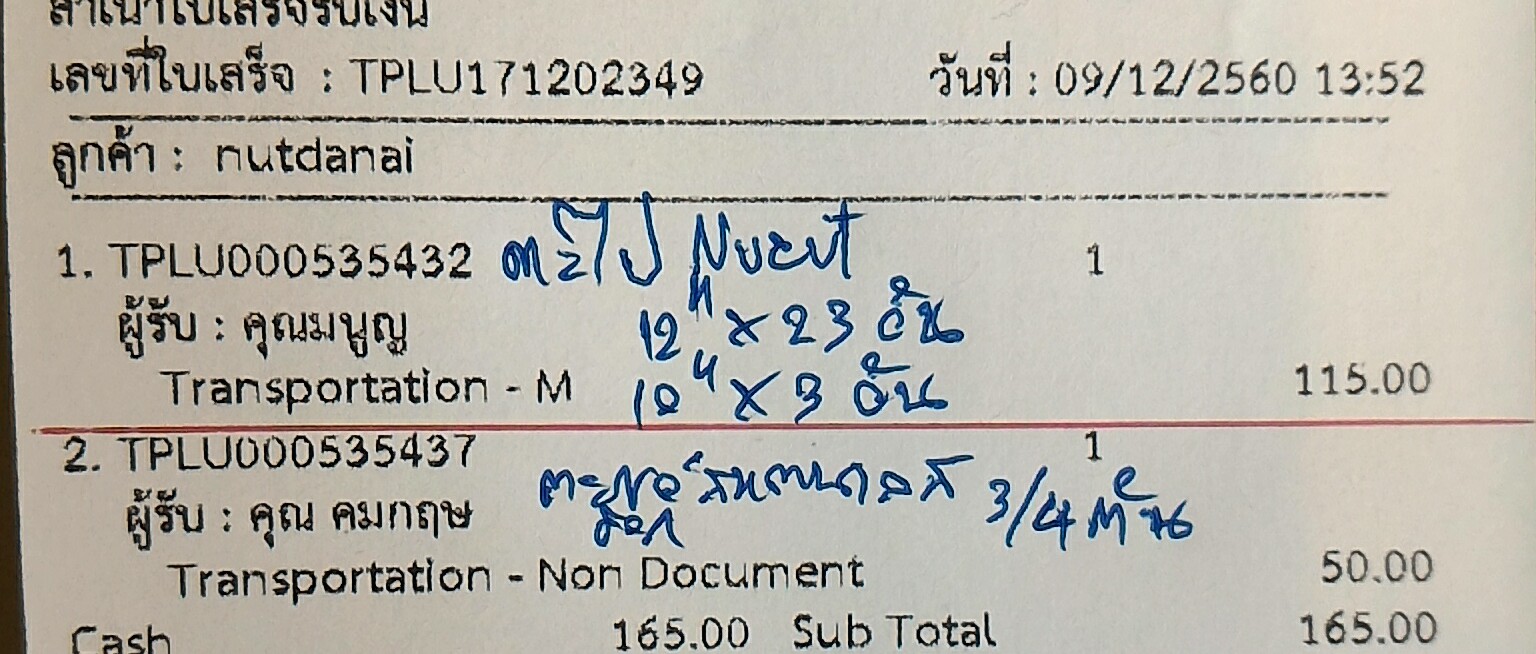 สำเนาใบเสร็จรับเงิน
เลขที่ใบเสร็จ : TPLU171202349 วันที่ : 09/12/2560 13:52
ลูกค้า : nutdanai
1. TPLU000535432 ตะไบ 1
ผู้รับ : คุณมนูญ 12" x 23 อัน
Transportation - M 10" x 3 อัน 115.00
2. TPLU000535437 1
ผู้รับ : คุณ คมกฤษ 3/4 ตัน
Transportation - Non Document 50.00
Cash 165.00 Sub Total 165.00